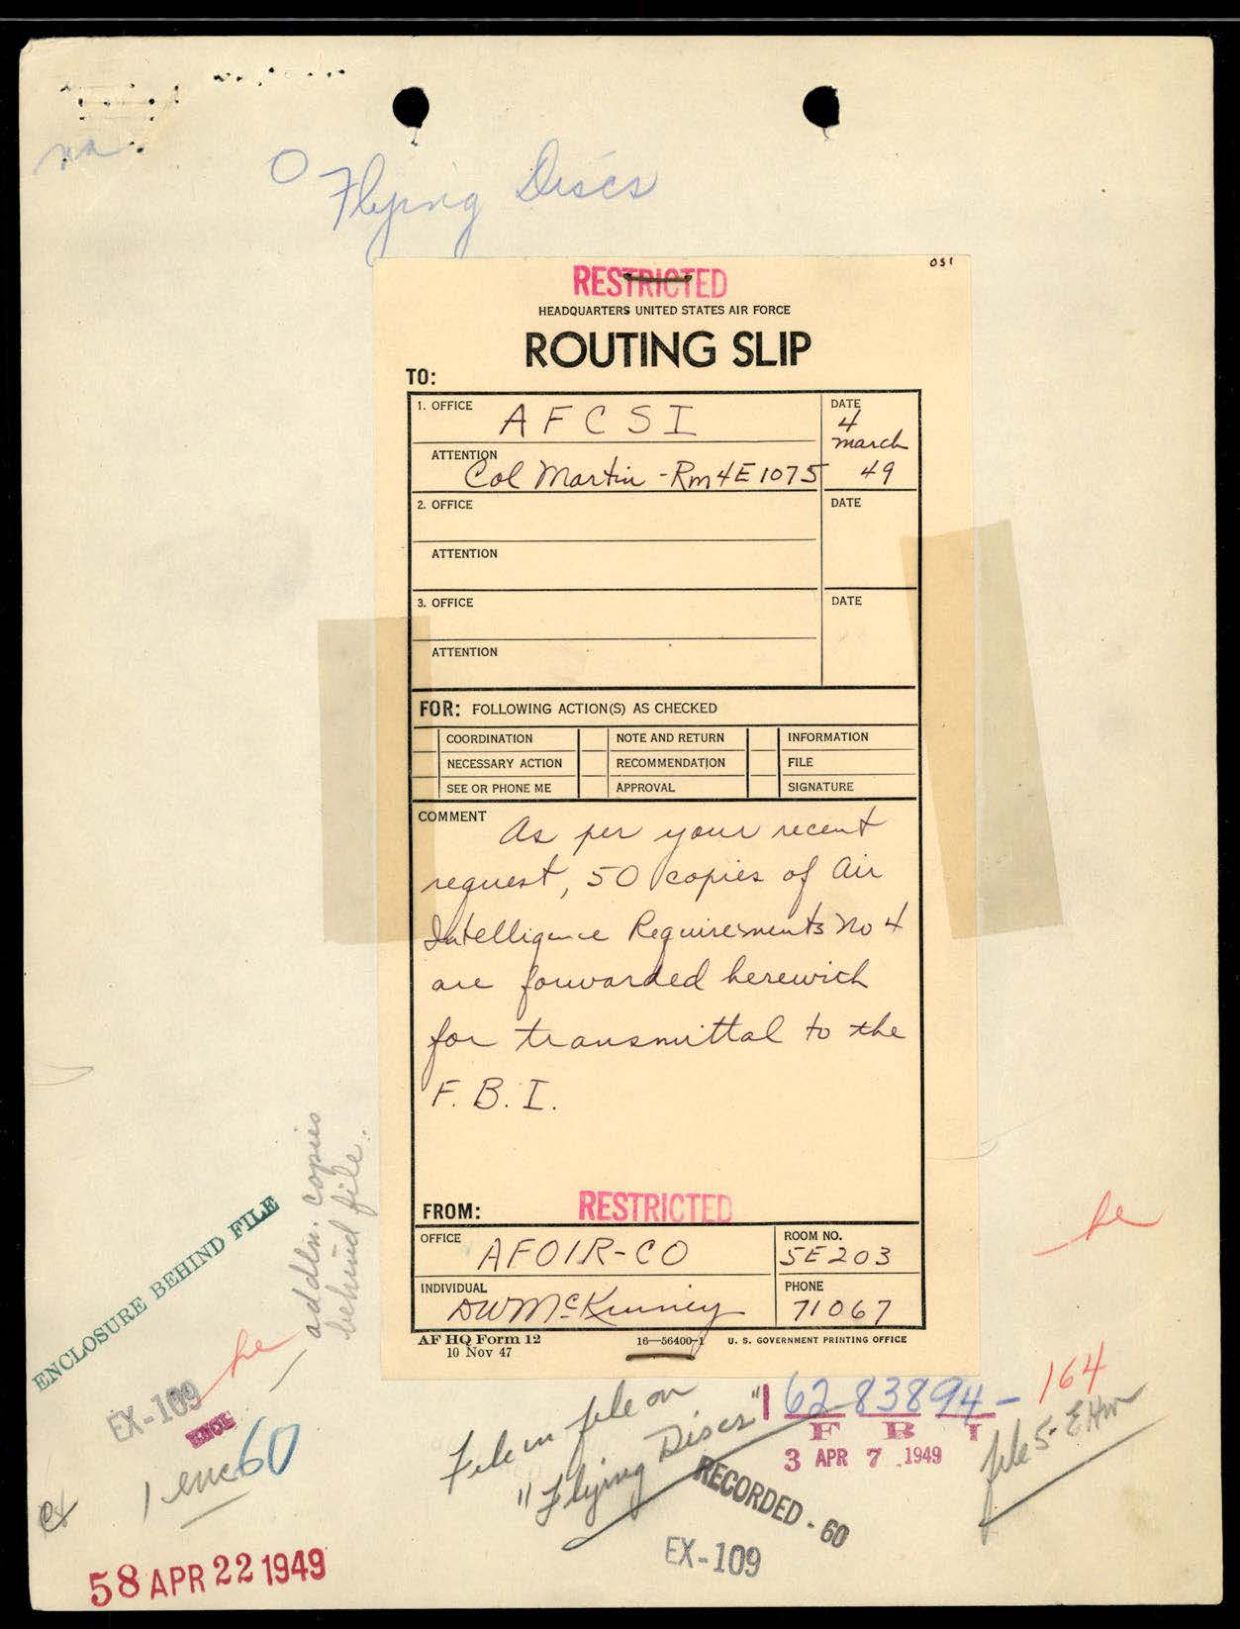 na
O Flying Discs
OSI
RESTRICTED
HEADQUARTERS UNITED STATES AIR FORCE
ROUTING SLIP
TO:
1. OFFICE AFCSI
DATE 4 March 49
ATTENTION Col Martin - Rm 4E 1075
2. OFFICE
DATE
ATTENTION
3. OFFICE
DATE
ATTENTION
FOR: FOLLOWING ACTION(S) AS CHECKED
COORDINATION NOTE AND RETURN INFORMATION
NECESSARY ACTION RECOMMENDATION FILE
SEE OR PHONE ME APPROVAL SIGNATURE
COMMENT As per your recent
request, 50 copies of Air
Intelligence Requirements No 4
are forwarded herewich
for transmittal to the
F. B. I.
FROM:
RESTRICTED
OFFICE AFOIR-CO
ROOM NO. 5E203
INDIVIDUAL DWMcKinney
PHONE 71067
AF HQ Form 12
10 Nov 47
16—56400-1 U. S. GOVERNMENT PRINTING OFFICE
addln. copies
behind file.
ENCLOSURE BEHIND FILE
EX-109
ENCL
1 enc 60
58 APR 22 1949
File in file on
"Flying Discs"
62-83894-164
F B I
3 APR 7 1949
RECORDED - 60
EX-109
file 5-